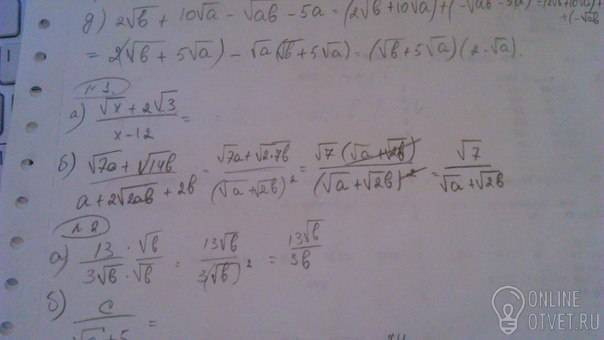 д) 2√b + 10√a - √ab - 5a = (2√b + 10√a) + (-√ab - 5a) =
+ (-√ab
= 2(√b + 5√a) - √a(√b + 5√a) = (√b + 5√a)(2 - √a).
а) (√x + 2√3)/(x - 12) =
б) (√7a + √14b)/(a + 2√2ab + 2b) = (√7a + √2·7b)/(√a + √2b)² = √7(√a + √2b)/(√a + √2b)² = √7/(√a + √2b)
№2
а) 13/(3√b) · √b/√b = 13√b/3(√b)² = 13√b/3b
б) c/(√a + 5) =
ONLINE
OTVET.RU